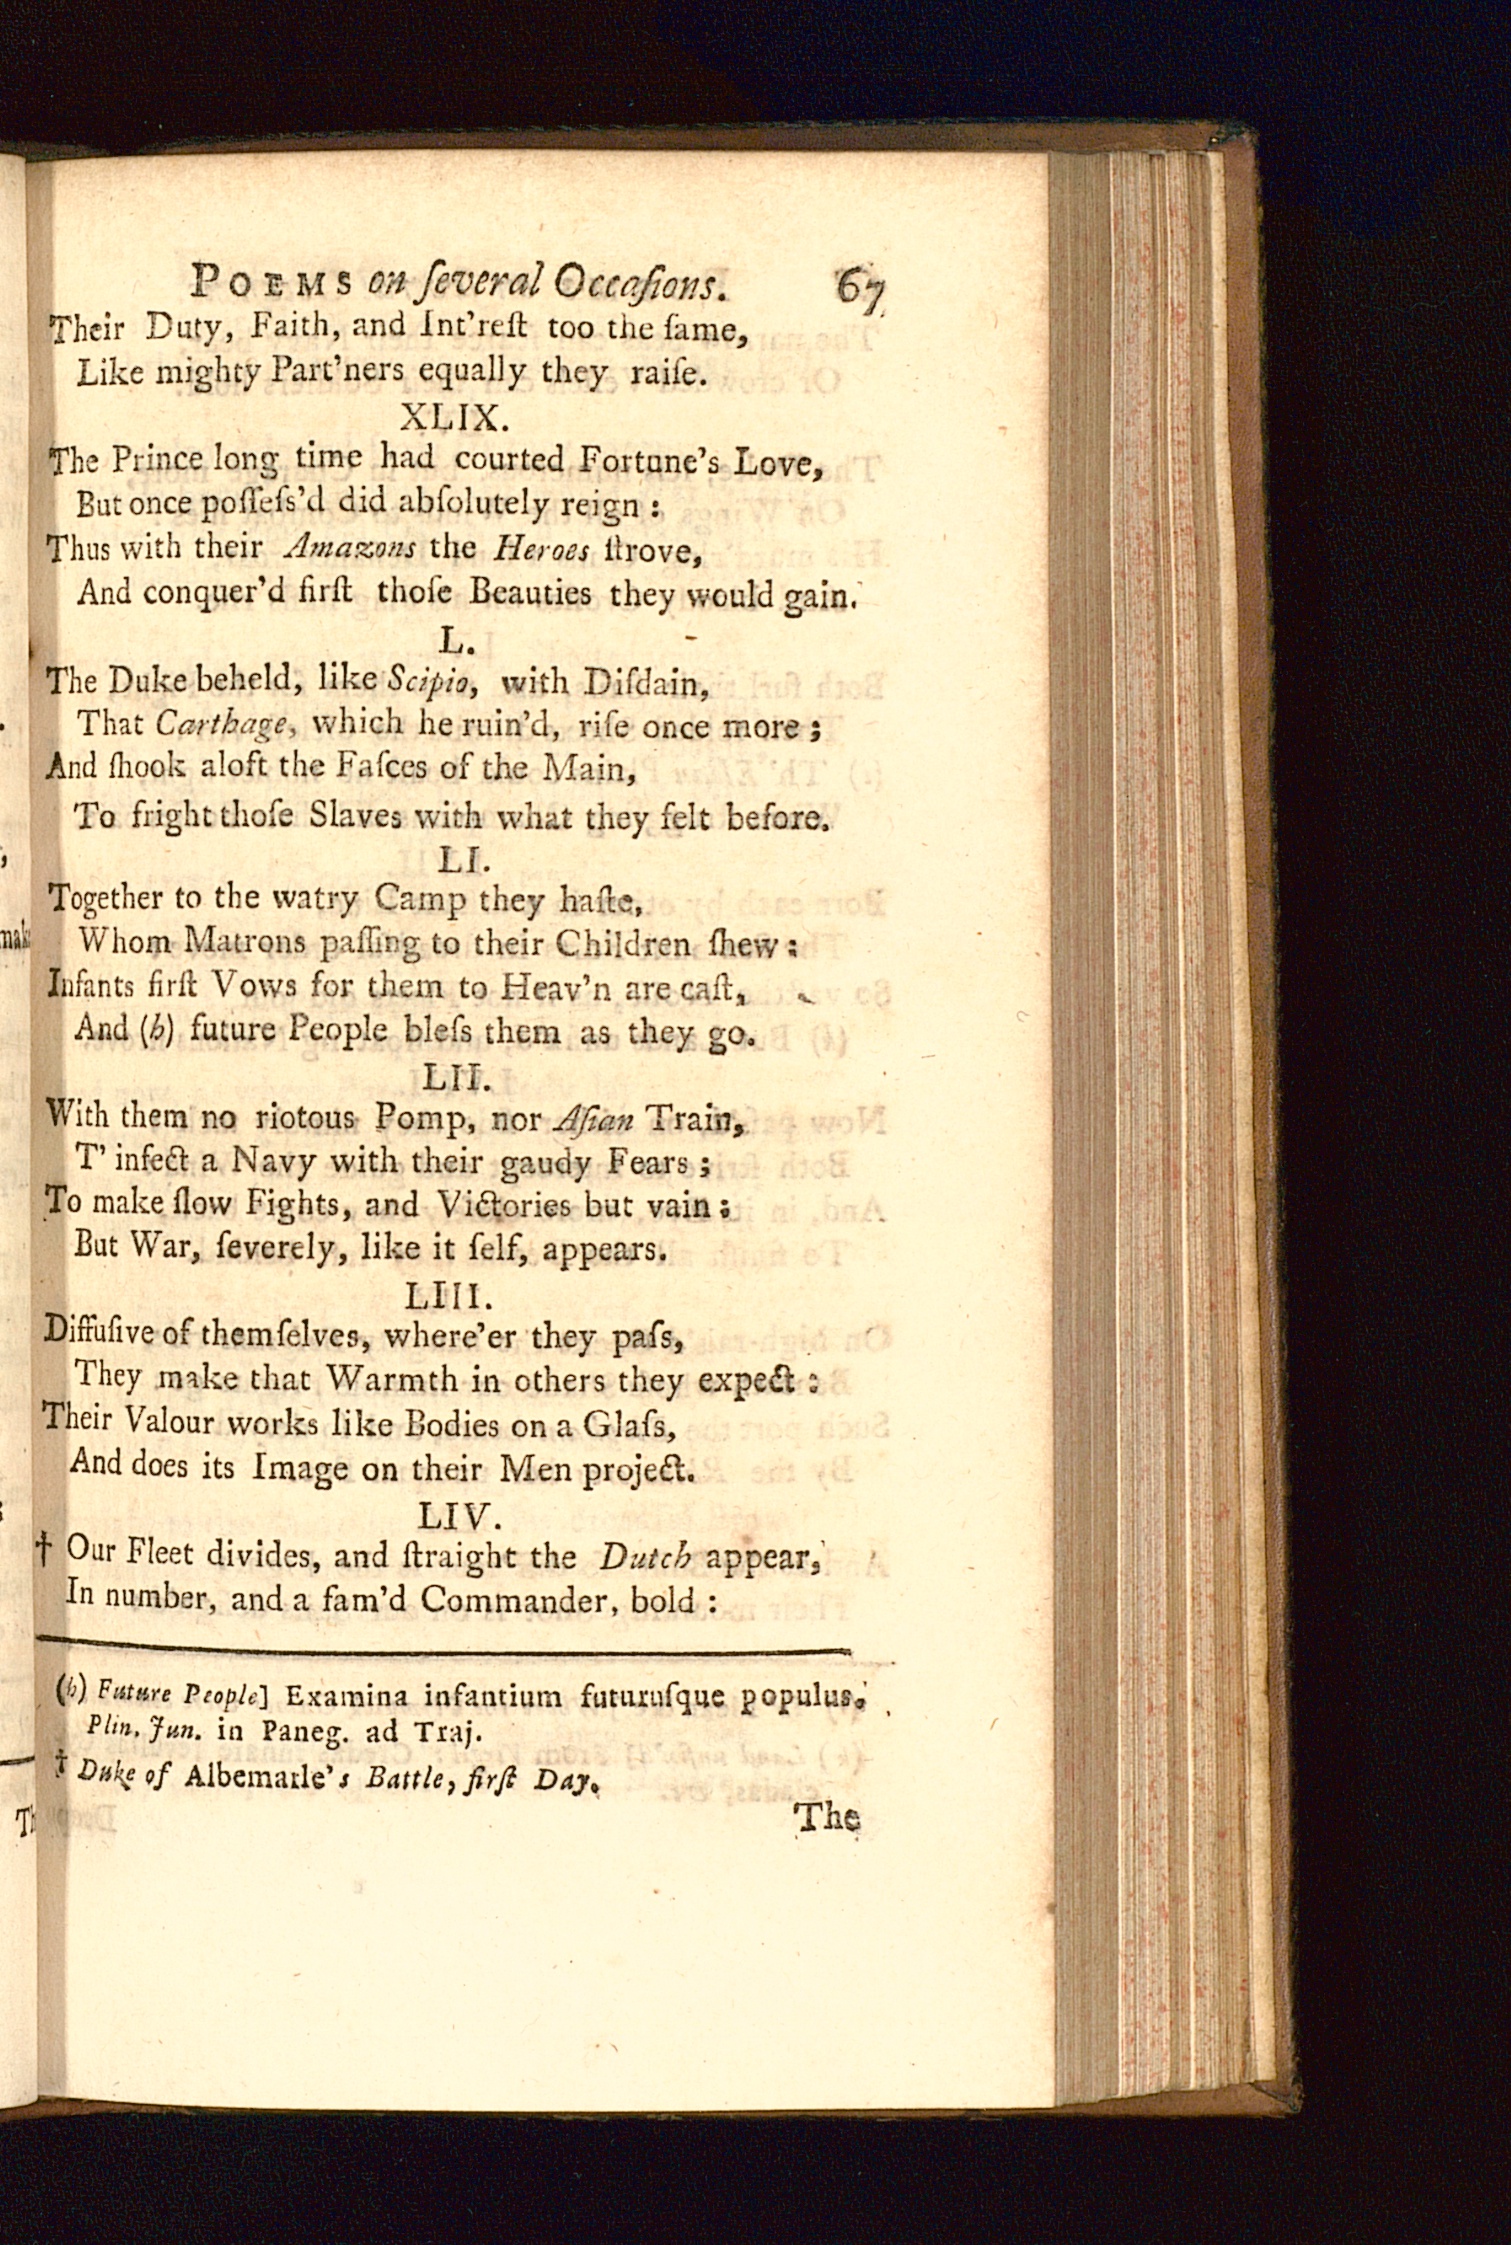 POEMS on ſeveral Occaſions. 67
Their Duty, Faith, and Int'reſt too the ſame,
Like mighty Part'ners equally they raiſe.
XLIX.
The Prince long time had courted Fortune's Love,
But once poſſeſs'd did abſolutely reign :
Thus with their Amazons the Heroes ſtrove,
And conquer'd firſt thoſe Beauties they would gain.
L.
The Duke beheld, like Scipio, with Diſdain,
That Carthage, which he ruin'd, riſe once more ;
And ſhook aloft the Faſces of the Main,
To fright thoſe Slaves with what they felt before.
LI.
Together to the watry Camp they haſte,
Whom Matrons paſſing to their Children ſhew :
Infants firſt Vows for them to Heav'n are caſt,
And (h) future People bleſs them as they go.
LII.
With them no riotous Pomp, nor Aſian Train,
T' infect a Navy with their gaudy Fears ;
To make ſlow Fights, and Victories but vain :
But War, ſeverely, like it ſelf, appears.
LIII.
Diffuſive of themſelves, where'er they paſs,
They make that Warmth in others they expect :
Their Valour works like Bodies on a Glaſs,
And does its Image on their Men project.
LIV.
† Our Fleet divides, and ſtraight the Dutch appear,
In number, and a fam'd Commander, bold :
(h) Future People] Examina infantium futuruſque populus.
Plin. Jun. in Paneg. ad Traj.
† Duke of Albemarle's Battle, firſt Day.
The